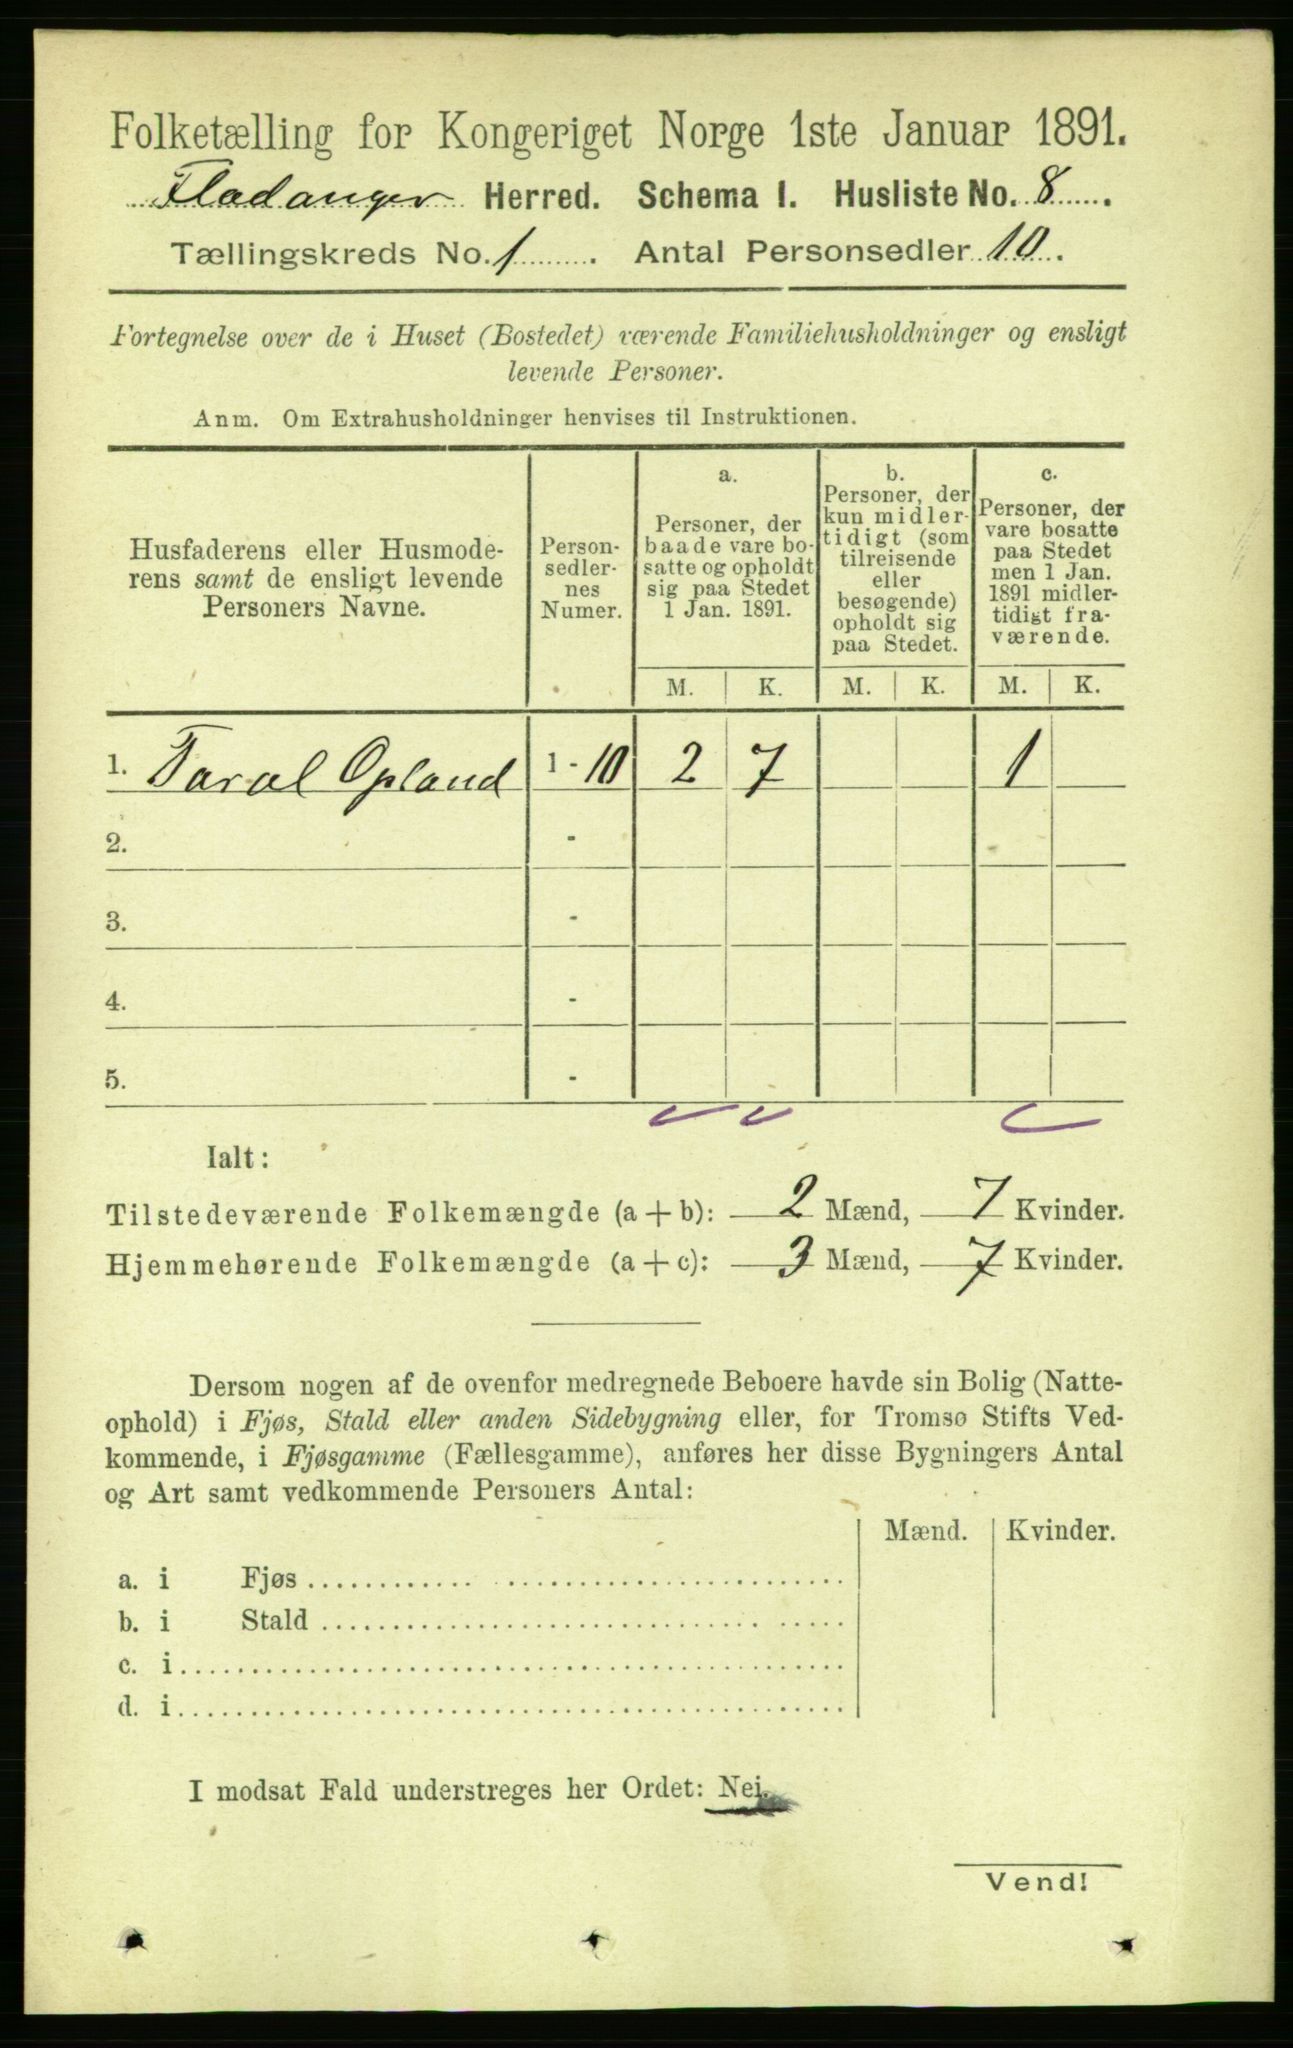 Folketælling for Kongeriget Norge 1ste Januar 1891.
Fladanger Herred. Schema I. Husliste No. 8
Tællingskreds No. 1. Antal Personsedler 10.
Fortegnelse over de i Huset (Bostedet) værende Familiehusholdninger og ensligt
levende Personer.
Anm. Om Extrahusholdninger henvises til Instruktionen.
Husfaderens eller Husmode-
rens samt de ensligt levende
Personers Navne.
Person-
sedler-
nes
Numer.
a.
Personer, der
baade vare bo-
satte og opholdt
sig paa Stedet
1 Jan. 1891.
b.
Personer, der
kun midler-
tidigt (som
tilreisende
eller
besøgende)
opholdt sig
paa Stedet.
c.
Personer, der
vare bosatte
paa Stedet
men 1 Jan.
1891 midler-
tidigt fra-
værende.
M. K. M. K. M. K.
1. Taral Opland 1 - 10 2 7 1
2. -
3. -
4. -
5. -
Ialt:
Tilstedeværende Folkemængde (a + b): 2 Mænd, 7 Kvinder.
Hjemmehørende Folkemængde (a + c): 3 Mænd, 7 Kvinder.
Dersom nogen af de ovenfor medregnede Beboere havde sin Bolig (Natte-
ophold) i Fjøs, Stald eller anden Sidebygning eller, for Tromsø Stifts Ved-
kommende, i Fjøsgamme (Fællesgamme), anføres her disse Bygningers Antal
og Art samt vedkommende Personers Antal:
Mænd. Kvinder.
a. i Fjøs
b. i Stald
c. i
d. i
I modsat Fald understreges her Ordet: Nei.
Vend!